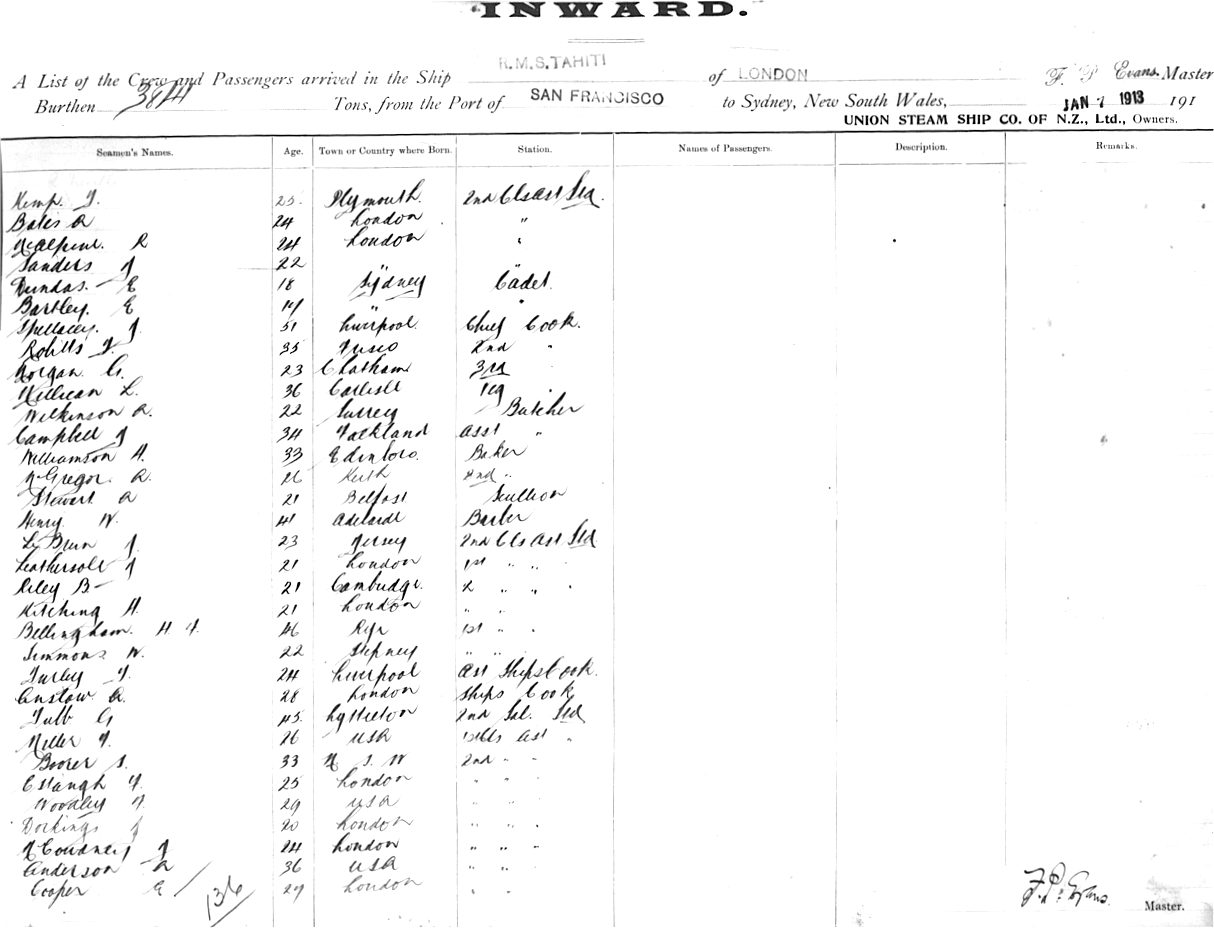 INWARD.
R.M.S. TAHITI
A List of the Crew and Passengers arrived in the Ship of LONDON F. P. Evans. Master
Burthen Tons, from the Port of SAN FRANCISCO to Sydney, New South Wales, JAN 1913 191
UNION STEAM SHIP CO. OF N.Z., Ltd., Owners.
Seamen's Names. Age. Town or Country where Born. Station. Names of Passengers. Description. Remarks.
Kemp. 25 Plymouth. 2nd Cls Ast Std.
Bates A 24 London "
McAlpine. R 24 London "
Sanders J 22 "
Dundas. E 18 Sydney Cadet
Bartley. E 17 " "
Spellacey. J. 51 Liverpool. Chief Cook.
35 Frisco 2nd "
Morgan G. 23 Chatham 3rd "
Millican L. 36 Carlisle
Wilkinson A. 22 Surrey Butcher
Campbell J 34 Falkland Asst "
Williamson H. 33 Edinboro. Baker
McGregor. A. 26 Keith 2nd "
Stewart A 21 Belfast Scullion
Henry W. 41 Adelaide Barber
Le Brun J. 23 Jersey 2nd Cls Ast Std
Leathersole J 21 London 1st " " "
Riley B 21 Cambridge. 2 " " "
Kitching H. 21 London " "
Bellingham. H. F. 46 Rye 1st " "
Simmons W. 22 Stepney " "
Turley F. 24 Liverpool Ast Ships Cook.
Anstow A. 28 London Ships Cook
Tubb G 45 Lyttleton 2nd Sal. Std
Miller F. 26 USA 1st Cls Ast "
Boorer S. 33 N S W 2nd " "
Estaugh F. 25 London " "
Woodley F. 29 USA " "
Dockings J 20 London " " "
McCoudney J 24 London " " "
Anderson A 36 USA " "
Cooper E 29 London " "
136
F. P. Evans.
Master.